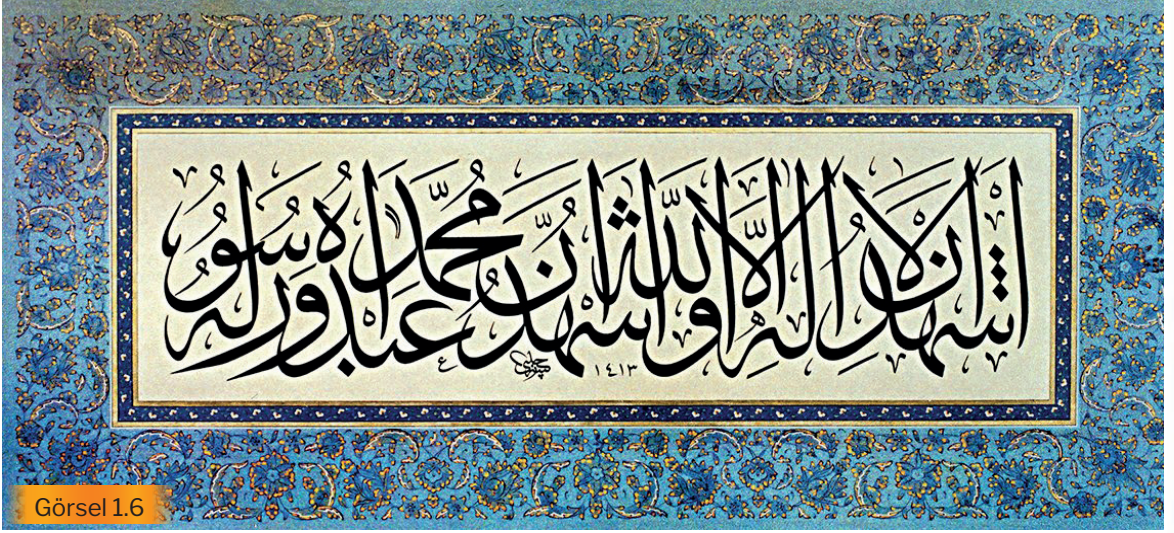 اشهد ان لا اله الا الله واشهد ان محمدا عبده ورسوله
١٤١٣
Görsel 1.6